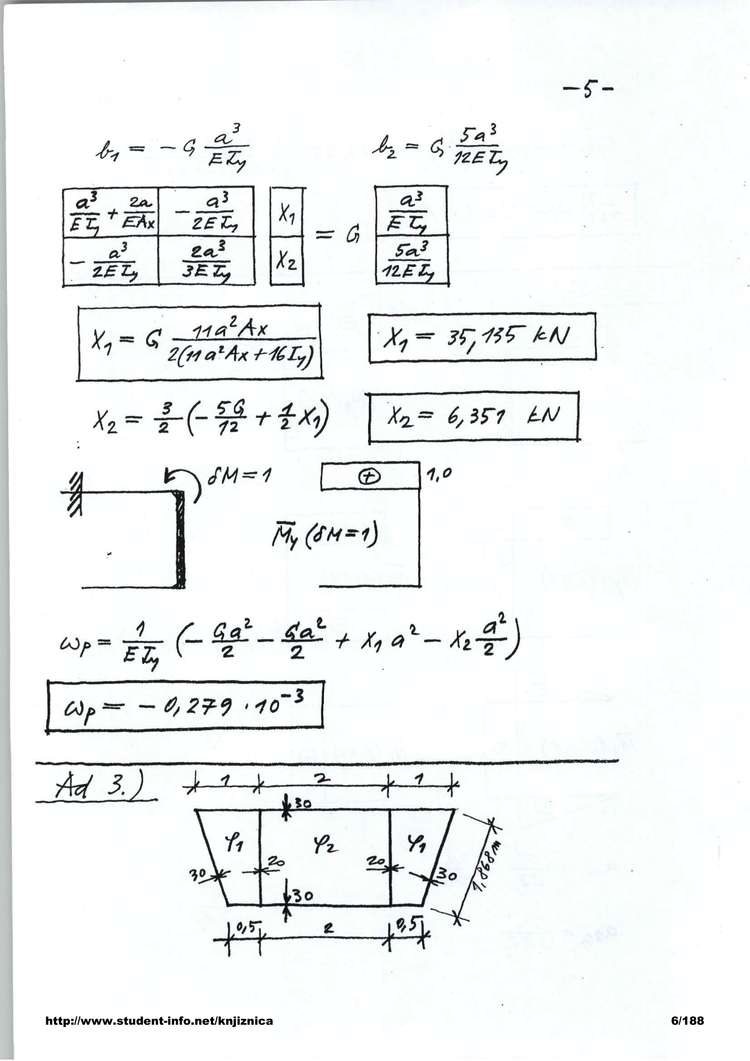 -5-
b₁ = - G a³/EIy    b₂ = G 5a³/12EIy
a³/EIy + 2a/EAx    - a³/2EIy    X₁    = G    a³/EIy
- a³/2EIy    2a³/3EIy    X₂    5a³/12EIy
X₁ = G 11a²Ax/2(11a²Ax+16Iy)    X₁ = 35,135 kN
X₂ = 3/2 (- 5G/12 + 1/2 X₁)    X₂ = 6,351 kN
δM=1    ⊕    1,0
M̅y (δM=1)
ωp = 1/EIy (- Ga²/2 - Ga²/2 + X₁a² - X₂ a²/2)
ωp = - 0,279 · 10⁻³
Ad 3.)    1    2    1
30
φ₁    φ₂    φ₁
30    20    20    30    1,868m
30
0,5    2    0,5
http://www.student-info.net/knjiznica    6/188